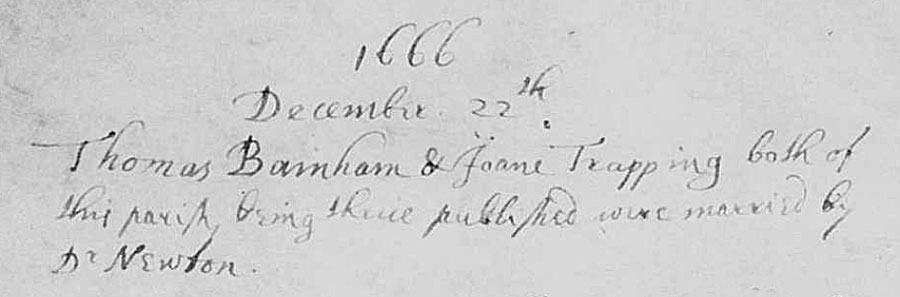 1666
December 22th.
Thomas Bainham & Joane Trapping both of
this parish being thrice published were married by
Dr Newton.